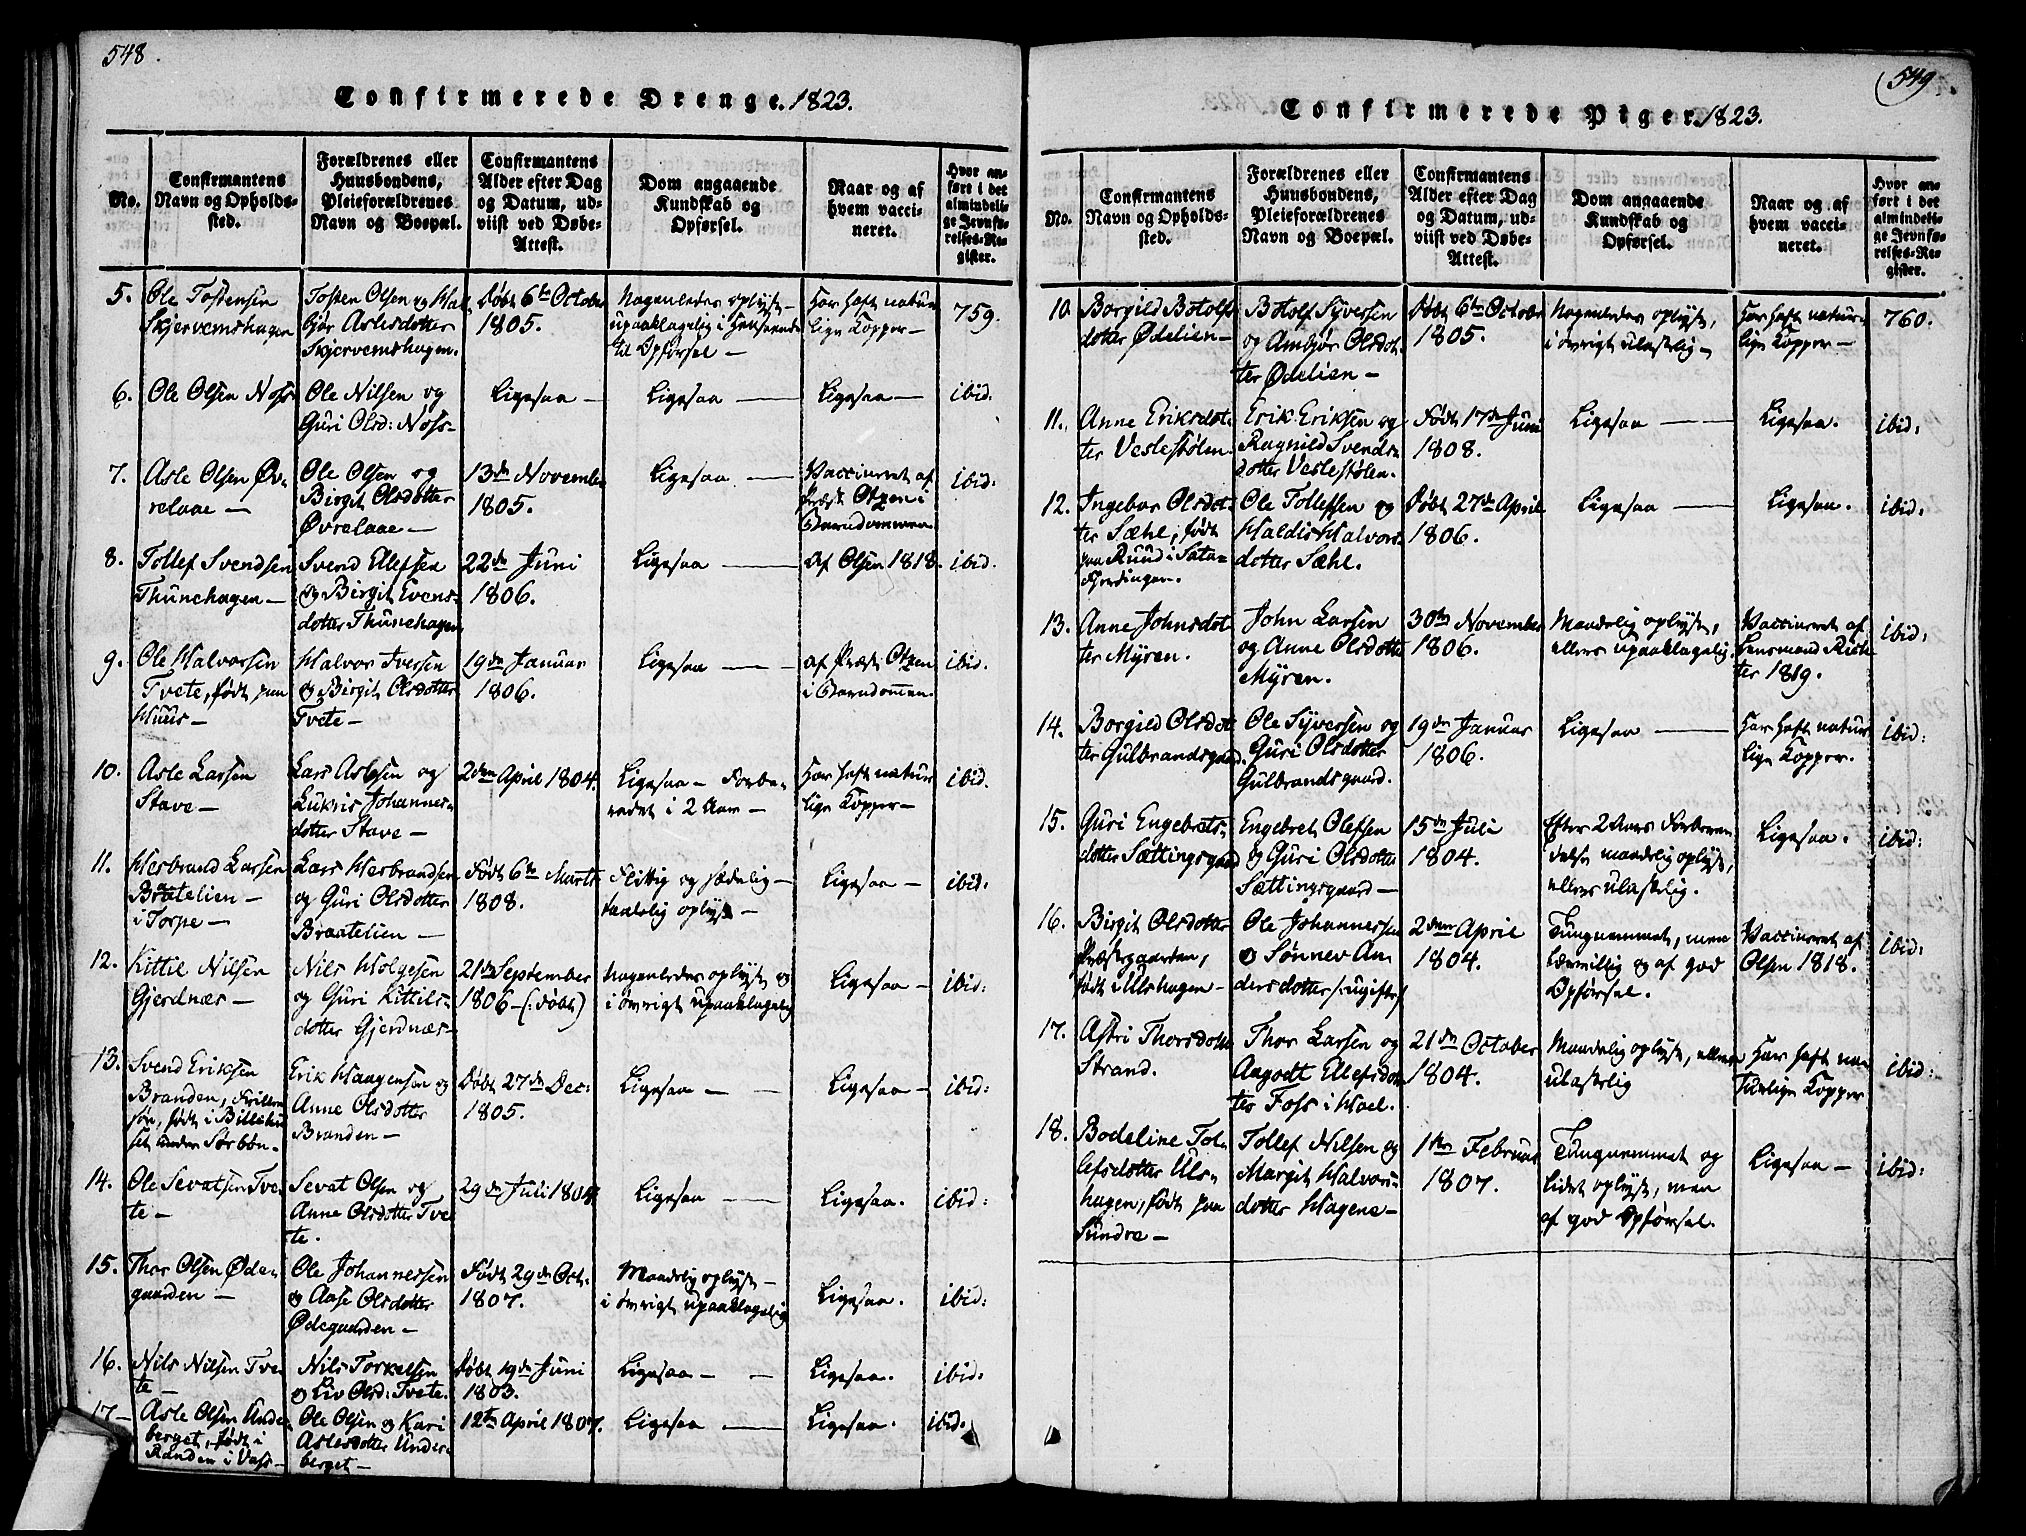 548.
Confirmerede Drenge. 1823.
No.
Confirmantens
Navn og Opholds-
sted.
Forældrenes eller
Huusbondens,
Pleieforældrenes
Navn og Boepæl.
Confirmantens
Alder efter Dag
og Datum, ud-
viist ved Døbe-
Attest.
Dom angaaende
Kundskab og
Opførsel.
Naar og af
hvem vacci-
neret.
Hvor an-
ført i det
almindeli-
ge Jevnfø-
relses-Re-
gister.
5.
Ole Tostensen
Skjervemshagen
Tosten Olsen og Hal-
bjør Aslesdotter
Skjervemshagen.
Døbt 6te October
1805.
Nogenledes oplyst -
upaaklagelig i Henseende
til Opførsel -
Har haft natur
lige Kopper -
759.
6.
Ole Olsen Noss
Ole Nilsen og
Guri Olsd: Noss-
Ligesaa -
Ligesaa -
Ligesaa -
ibid.
7.
Asle Olsen Øv-
relaae -
Ole Olsen og
Birgit Olsdotter
Øvrelaae -
13de November
1805.
Ligesaa -
Vaccineret af
Præst Otzen i
Barndommen
ibid.
8.
Tollef Svendsen
Thunehagen -
Svend Ellefsen
og Birgit Evens-
dotter Thunehagen
22de Juni
1806.
Ligesaa -
Af Olsen 1818.
ibid.
9.
Ole Halvorsen
Tvete, født paa
Huus -
Halvor Iversen
og Birgit Olsdotter
Tvete -
19de Januar
1806.
Ligesaa -
af Præst Otzen
i Barndommen.
ibid.
10.
Asle Larsen
Stave -
Lars Aslesen og
Lukris Johannes-
dotter Stave -
2den April 1804.
Ligesaa - Forbe-
redet i 2 Aar -
Har haft natur
lige Kopper -
ibid.
11.
Herbrand Larsen
Braatelien -
i Torpe -
Lars Herbrandsen
og Guri Olsdotter
Braatelien -
Født 6te Marts
1808.
Flittig og sædelig -
taalelig oplyst -
Ligesaa -
ibid.
12.
Kittil Nilsen
Gjerdnæs -
Nils Holgesen
og Guri Kittils-
dotter Gjerdnæs-
21de September
1806 - (: døbt)
Nogenledes oplyst og
i øvrigt upaaklagelig
Ligesaa -
ibid:
13.
Svend Eriksen
Branden,
født i
under Sørbøn.
Erik Haagensen og
Anne Olsdotter
Branden -
Døbt 27de Dec:
1805.
Ligesaa -
Ligesaa -
ibid:
14.
Ole Sevatsen Tve-
te -
Sevat Olsen og
Anne Olsdotter Tve
te.
29de Juli 1804.
Ligesaa -
Ligesaa.
ibid:
15.
Thor Olsen Øde-
gaarden -
Ole Johannessen
og Aase Olsdotter
Ødegaarden -
Født 29de Oct:
1807.
Maadelig oplyst -
i øvrigt upaaklagelig
Ligesaa.
ibid:
16.
Nils Nilsen Tve-
te -
Nils Torkelsen
og Liv Olsd: Tvete.
Døbt 19de Juni
1803.
Ligesaa -
Ligesaa.
ibid.
17 -
Asle Olsen Under-
berget, født i
Randen i Vass -
Ole Olsen og Kari
Aslesdotter Under-
berget -
12te April 1807.
Ligesaa -
Ligesaa.
ibid.
549.
Confirmerede Piger. 1823.
No.
Confirmantens
Navn og Opholds-
sted.
Forældrenes eller
Huusbondens,
Pleieforældrenes
Navn og Boepæl.
Confirmantens
Alder efter Dag
og Datum, ud-
viist ved Døbe-
Attest.
Dom angaaende
Kundskab og
Opførsel.
Naar og af
hvem vacci-
neret.
Hvor an-
ført i det
almindeli-
ge Jevnfø-
relses-Re-
gister.
10.
Borgild Botolfs
dotter Ødelien -
Botolf Syversen
og Ambjør Olsdot-
ter Ødelien -
Døbt 6te October
1805.
Nogenledes oplyst,
i øvrigt ulastelig -
Har haft natur-
lige Kopper -
760.
11.
Anne Eriksdot-
ter Veslestølen.
Erik Eriksen og
Ragnild Svends-
dotter Veslestølen.
Født 17de Juni
1808.
Ligesaa -
Ligesaa.
ibid:
12.
Ingebor Olsdot-
ter Sæhle, født
paa Ruud i
Ole Tollefsen og
Haldis Halvors-
dotter Sæhle.
Døbt 27de April
1806.
Ligesaa -
Ligesaa.
ibid:
13.
Anne Johnsdot-
ter Myren.
John Larsen
og Anne Olsdotter
Myren.
30te November
1806.
Maadelig oplyst,
ellers upaaklagelig.
Vaccineret af
Lensmand Rich-
ter 1819.
ibid:
14.
Borgild Olsdot-
ter Gulbrandsgaard.
Ole Syversen og
Guri Olsdotter
Gulbrandsgaard.
19de Januar
1806.
Ligesaa -
Har haft natur
lige Kopper.
ibid:
15.
Guri Engebrets-
dotter Sættingsgaard
Engebret Olefsen
og Guri Olsdotter
Sættingsgaard -
15de Juli
1804.
Efter 2 Aars Forbere-
delse maadelig oplyst,
ellers ulastelig.
Ligesaa.
ibid:
16.
Birgit Olsdotter
Præstegaarden,
født i Ulshagen -
Ole Johannessen
og Sønnev An-
dersdotter /: ugifte/
2den April
1804.
Tungnemmet, men
lærvillig og af god
Opførsel.
Vaccineret af
Olsen 1818.
ibid:
17.
Astri Thorsdotter
Strand.
Thor Larsen og
Aagodt Ellefsdot-
ter Foss i Hoel.
21de October
1804.
Maadelig oplyst, ellers
ulastelig
Har haft na-
turlige Kopper
ibid:
18.
Bodeline Tol-
lefsdotter Uls-
hagen, født paa
Sundre -
Tollef Nilsen og
Margit Halvors-
dotter Hagene -
1ste Februar
1807.
Tungnemmet og
lidet oplyst, men
af god Opførsel.
Ligesaa -
ibid: